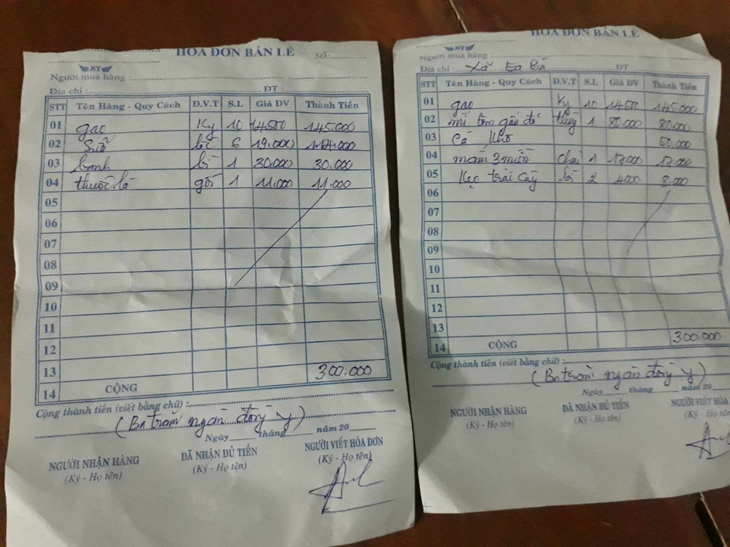 HÓA ĐƠN BÁN LẺ
SỐ:
NT
Người mua hàng
Địa chỉ : ĐT :
STT Tên Hàng - Quy Cách Đ.V.T S.L Giá ĐV Thành Tiền
01 gạo Ký 10 14500 145.000
02 Sữa lốc 6 19.000 114.000
03 banh bì 1 30.000 30.000
04 thuốc lá gói 1 11.000 11.000
05
06
07
08
09
10
11
12
13 300.000
14 CỘNG
Cộng thành tiền (viết bằng chữ) :
(Ba trăm ngàn đồng y)
Ngày tháng năm 20
NGƯỜI NHẬN HÀNG ĐÃ NHẬN ĐỦ TIỀN NGƯỜI VIẾT HÓA ĐƠN
(Ký - Họ tên) (Ký - Họ tên) (Ký - Họ tên)
HÓA ĐƠN BÁN LẺ
SỐ:
NT
Người mua hàng
Địa chỉ : Xã Ea ĐT
STT Tên Hàng - Quy Cách Đ.V.T S.L Giá ĐV Thành Tiền
01 gạo Ký 10 14500 145.000
02 mì tôm gấu đỏ thùng 1 80.000 80.000
03 Cá Khô
04 mắm 3 miền chai 1
05 Kẹo trái cây bì 2 4000 8.000
06
07
08
09
10
11
12
13
14 CỘNG 300.000
Cộng thành tiền (viết bằng chữ) :
(Ba trăm ngàn đồng y)
Ngày tháng năm 20
NGƯỜI NHẬN HÀNG ĐÃ NHẬN ĐỦ TIỀN NGƯỜI VIẾT HÓA
(Ký - Họ tên) (Ký - Họ tên) (Ký - Họ tên)